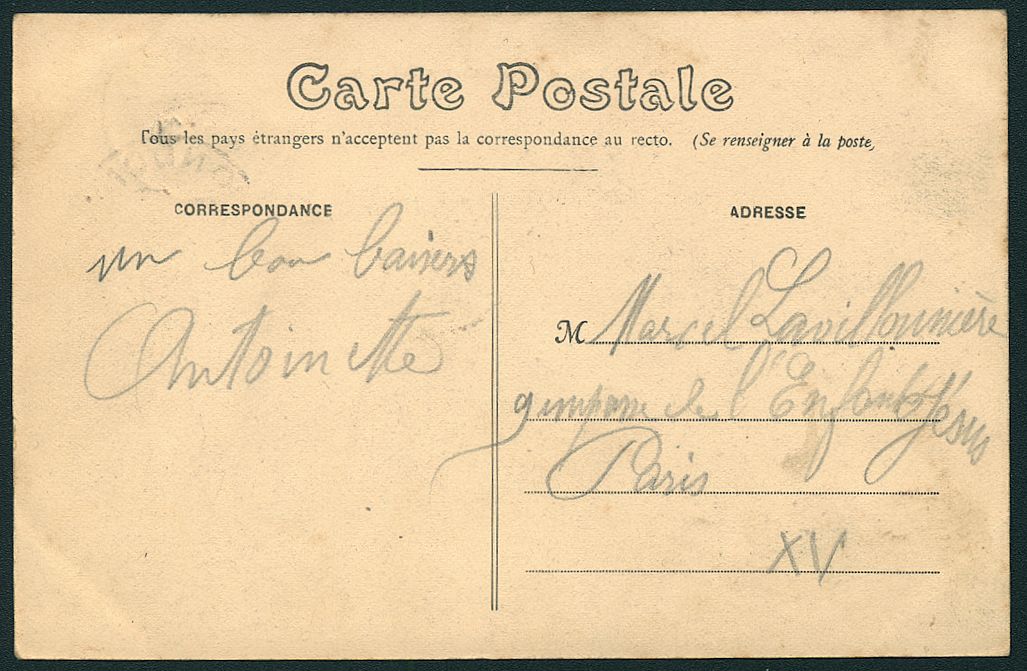 Carte Postale
Tous les pays étrangers n'acceptent pas la correspondance au recto. (Se renseigner à la poste)
CORRESPONDANCE
un bon baisers
Antoinette
ADRESSE
M Marcel Lavillounière
de l'Enfant Jésus
Paris
XV